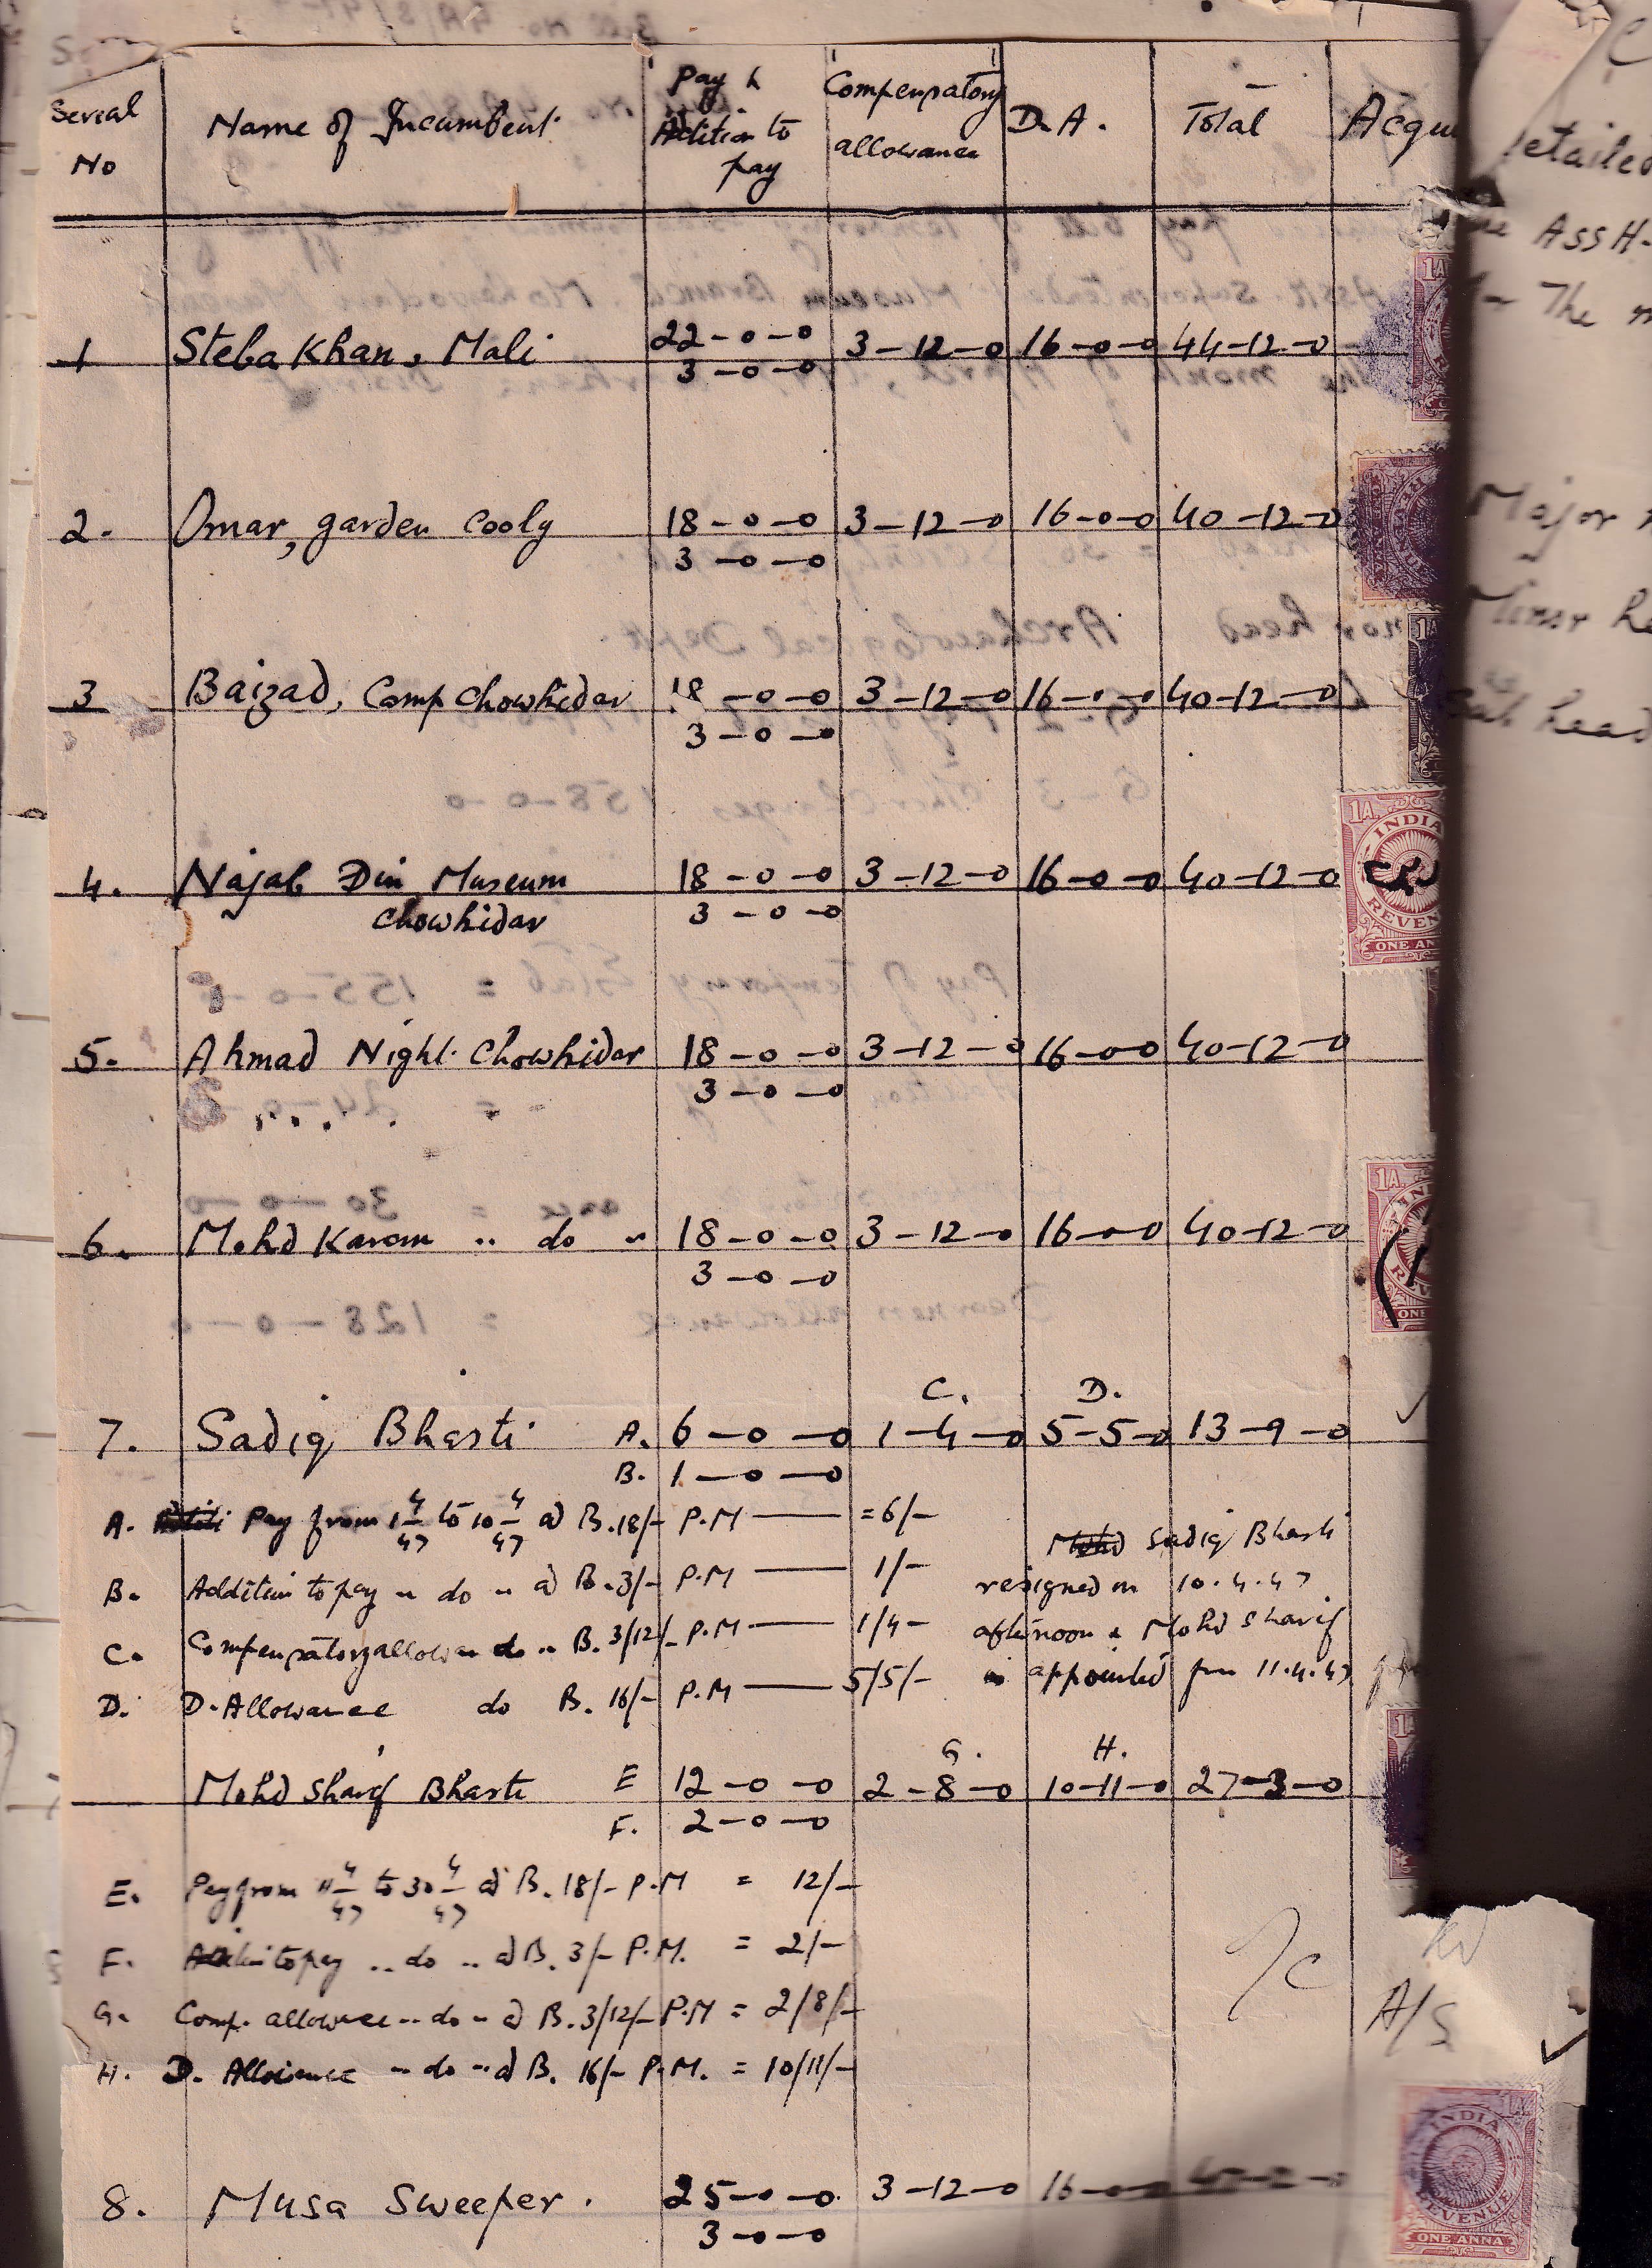 Serial No
Name of Incumbent
Pay & Addition to pay
Compensatory allowance
D.A.
Total
Acqu
1 Steba Khan, Mali 22-0-0 3-12-0 16-0-0 44-12-0
3-0-0
2. Omar, garden Cooly 18-0-0 3-12-0 16-0-0 40-12-0
3-0-0
3 Baizad, Comp Chowkidar 18-0-0 3-12-0 16-0-0 40-12-0
3-0-0
4. Najab Din Museum 18-0-0 3-12-0 16-0-0 40-12-0
Chowkidar 3-0-0
5. Ahmad Night Chowkidar 18-0-0 3-12-0 16-0-0 40-12-0
3-0-0
6. Mohd Karam .. do .. 18-0-0 3-12-0 16-0-0 40-12-0
3-0-0
C. D.
7. Sadiq Bhasti A. 6-0-0 1-4-0 5-5-0 13-9-0
B. 1-0-0
A. Pay from 1 4/47 to 10 4/47 @ R.18/- P.M — =6/-
B. Addition to pay .. do .. @ R.3/- P.M — 1/-
C. Compensatory allow .. do .. R.3/12/- P.M — 1/4-
D. D. Allowance do R. 16/- P.M — 5/5/-
Mohd Sadiq Bhasti
resigned on 10.4.47
afternoon & Mohd Sharif
is appointed from 11.4.47
G. H.
Mohd Sharif Bhasti E 12-0-0 2-8-0 10-11-0 27-3-0
F. 2-0-0
E. Pay from 11 4/47 to 30 4/47 @ R. 18/- P.M = 12/-
F. to pay .. do .. @ R. 3/- P.M. = 2/-
G. Comp. allowance .. do .. @ R. 3/12/- P.M = 2/8/-
H. D. Allowance .. do .. @ R. 16/- P.M. = 10/11/-
A/S
8. Musa Sweeper. 25-0-0 3-12-0 16-0-0
3-0-0
etailed
Asstt-
- The m
Major
Minor he
Sub head
1A.
INDIA
REVENUE
ONE AN
1A.
INDIA
REVENUE
ONE ANNA